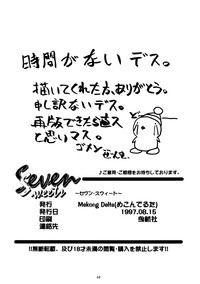 時間がないデス。
描いてくれた方、ありがとう。
申し訳ないデス。
再版できたら直ス
と思いマス。
ゴメン
ぜんき
♪ご意見・ご感想をお待ちしております♪
Seven
sweet
～セヴン・スウィート～
発行 Mekong Delta(めこんでるた)
発行日 1997.08.15
印刷
連絡先
!!無断転載、及び18才未満の閲覧・購入を禁止します!!